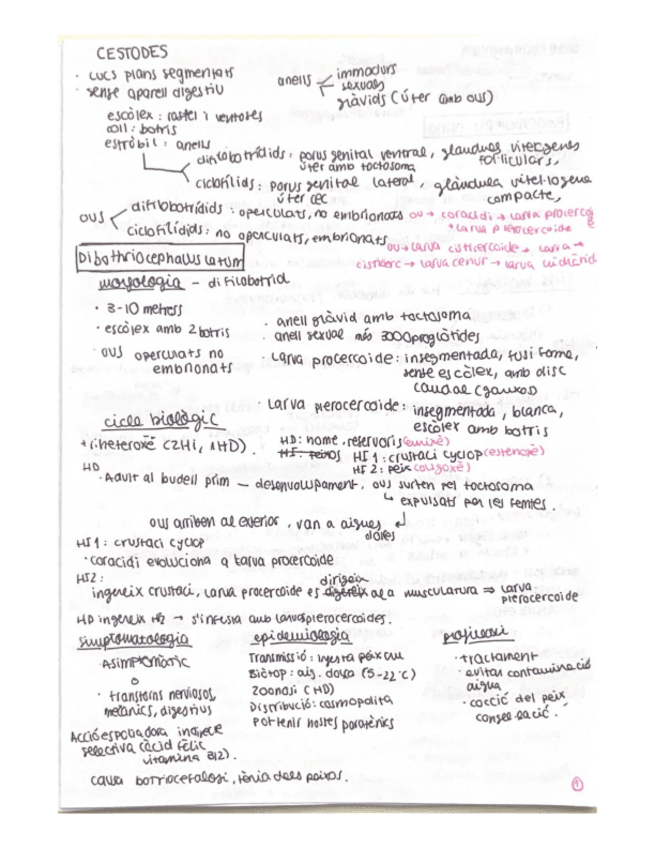 CESTODES
· cucs plans segmentats
· sense aparell digestiu
anells < immadurs
sexuals
gràvids (úter amb ous)
escòlex: rostel i ventoses
coll: botris
estròbil: anells
difilobotrídids: porus genital ventral, glàndules vitelògenes fol·liculars,
úter amb toctosoma
ciclofílids: porus genital lateral, glàndula vitel·logena compacte,
úter cec
ous < difilobotrídids: operculats, no embrionats ou → coracidi → larva procercoide
→ larva plerocercoide
ciclofilídids: no operculats, embrionats
ou → larva cisticercoide → larva →
cisticerc → larva cenur → larva hidàtid
Dibothriocephalus latum
morfologia – difilobotrid
· 3-10 metres
· escòlex amb 2 botris
· ous operculats no
embrionats
· anell gràvid amb toctosoma
· anell sexual més 3000 proglòtides
· Larva procercoide: insegmentada, fusiforme,
sense escòlex, amb disc
caudal (ganxos)
· Larva plerocercoide: insegmentada, blanca,
escòlex amb botris
cicle biològic
triheteroxè (2HI, 1HD).
HD: home. reservoris (eurixè)
HI: peixos HI 1: crustaci cyclop (estenoxè)
HI 2: peix (oligoxè)
HD
· Adult al budell prim – desenvolupament, ous surten pel toctosoma
↳ expulsats per les femtes.
ous arriben al exterior, van a aigües
dolces
HI1: crustaci cyclop
· coracidi evoluciona a larva procercoide
HI2:
ingereix crustaci, larva procercoide es digereix dirigeix a la musculatura ⇒ larva
plerocercoide
HD ingereix HI2 → s'infesta amb larves plerocercoides.
simptomatologia
· Asimptomàtic
o
· transtorns nerviosos,
mecànics, digestius
Acció espoliadora indirecte
selectiva (àcid fòlic
vitamina B12).
causa botriocefalosi, tènia dels peixos.
epidemiologia
Transmissió: ingesta peix cru
Biòtop: aig. dolça (5-22°C)
Zoonosi (HD)
Distribució: cosmopolita
Pot tenir hostes paratènics
profilaxi
· tractament
· evitar contaminació
aigua
· cocció del peix
conselació.
1